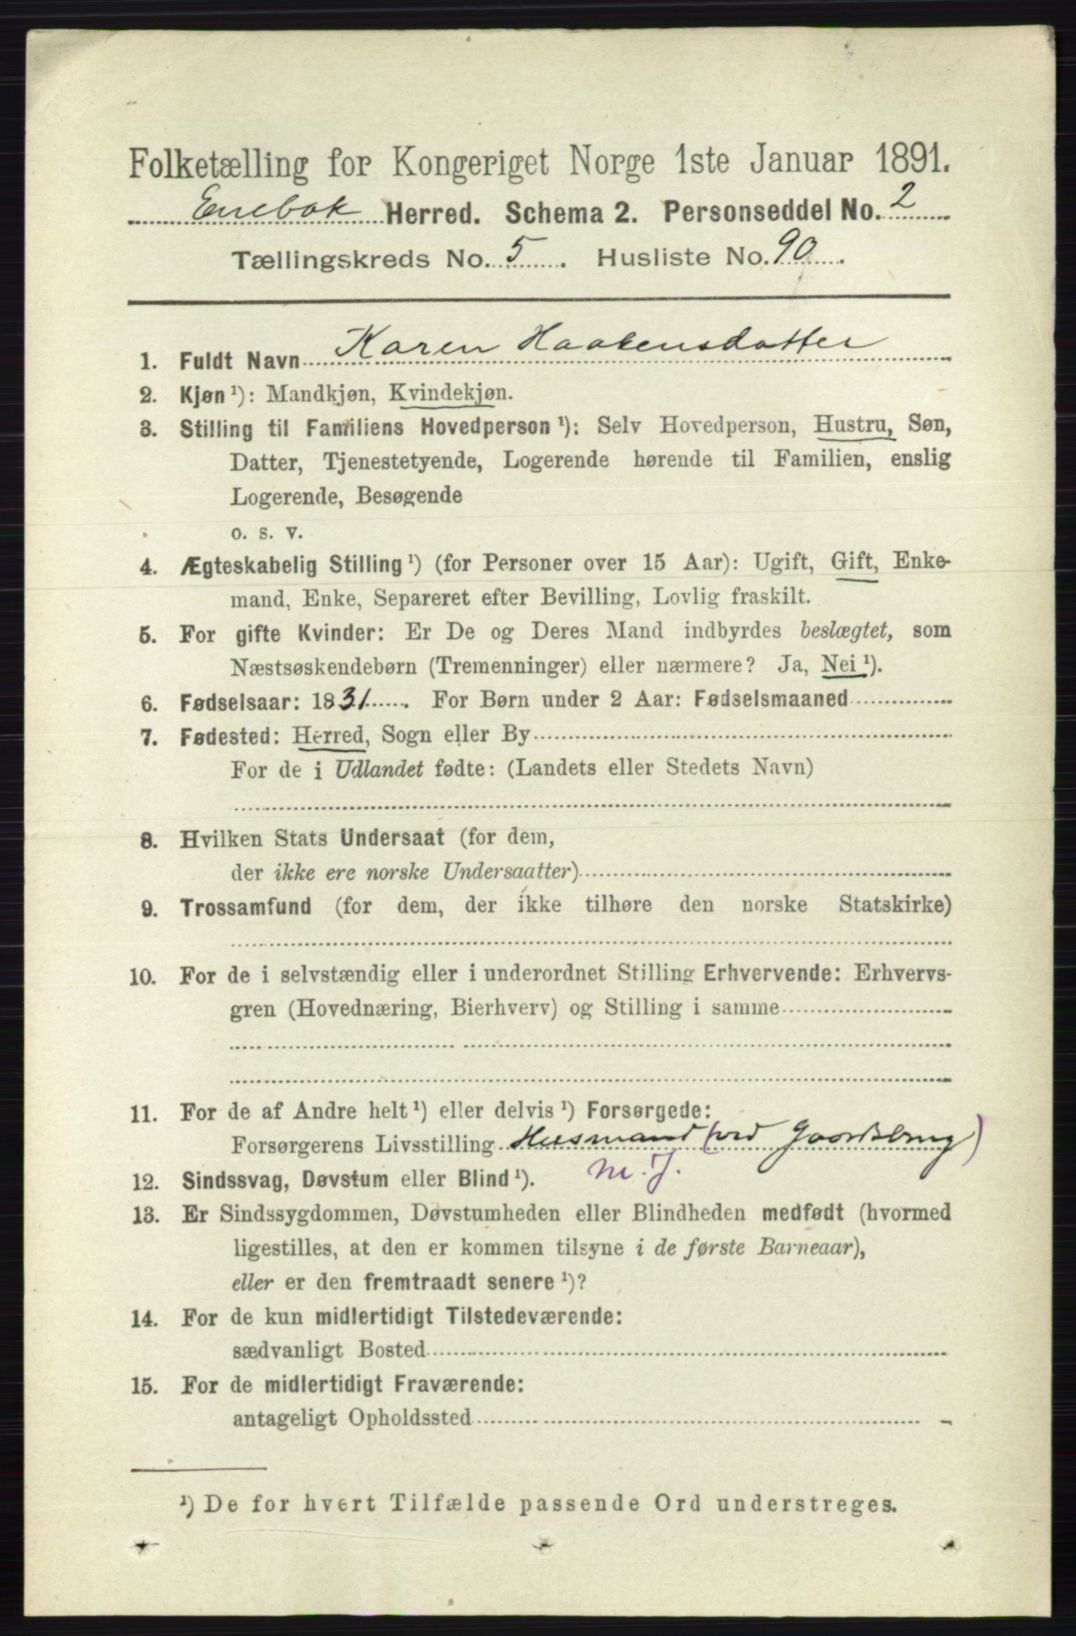 Folketælling for Kongeriget Norge 1ste Januar 1891.
Enebak Herred. Schema 2. Personseddel No. 2
Tællingskreds No. 5. Husliste No. 90.
1. Fuldt Navn Karen Haakensdatter
2. Kjøn ¹): Mandkjøn, Kvindekjøn.
3. Stilling til Familiens Hovedperson ¹): Selv Hovedperson, Hustru, Søn,
Datter, Tjenestetyende, Logerende hørende til Familien, enslig
Logerende, Besøgende
o. s. v.
4. Ægteskabelig Stilling ¹) (for Personer over 15 Aar): Ugift, Gift, Enke-
mand, Enke, Separeret efter Bevilling, Lovlig fraskilt.
5. For gifte Kvinder: Er De og Deres Mand indbyrdes beslægtet, som
Næstsøskendebørn (Tremenninger) eller nærmere? Ja, Nei ¹).
6. Fødselsaar: 1831. For Børn under 2 Aar: Fødselsmaaned
7. Fødested: Herred, Sogn eller By
For de i Udlandet fødte: (Landets eller Stedets Navn)
8. Hvilken Stats Undersaat (for dem,
der ikke ere norske Undersaatter)
9. Trossamfund (for dem, der ikke tilhøre den norske Statskirke)
10. For de i selvstændig eller i underordnet Stilling Erhvervende: Erhvervs-
gren (Hovednæring, Bierhverv) og Stilling i samme
11. For de af Andre helt ¹) eller delvis ¹) Forsørgede:
Forsørgerens Livsstilling Husmand (ved Gaardsbrug)
m. J.
12. Sindssvag, Døvstum eller Blind ¹).
13. Er Sindssygdommen, Døvstumheden eller Blindheden medfødt (hvormed
ligestilles, at den er kommen tilsyne i de første Barneaar),
eller er den fremtraadt senere ¹)?
14. For de kun midlertidigt Tilstedeværende:
sædvanligt Bosted
15. For de midlertidigt Fraværende:
antageligt Opholdssted
¹) De for hvert Tilfælde passende Ord understreges.